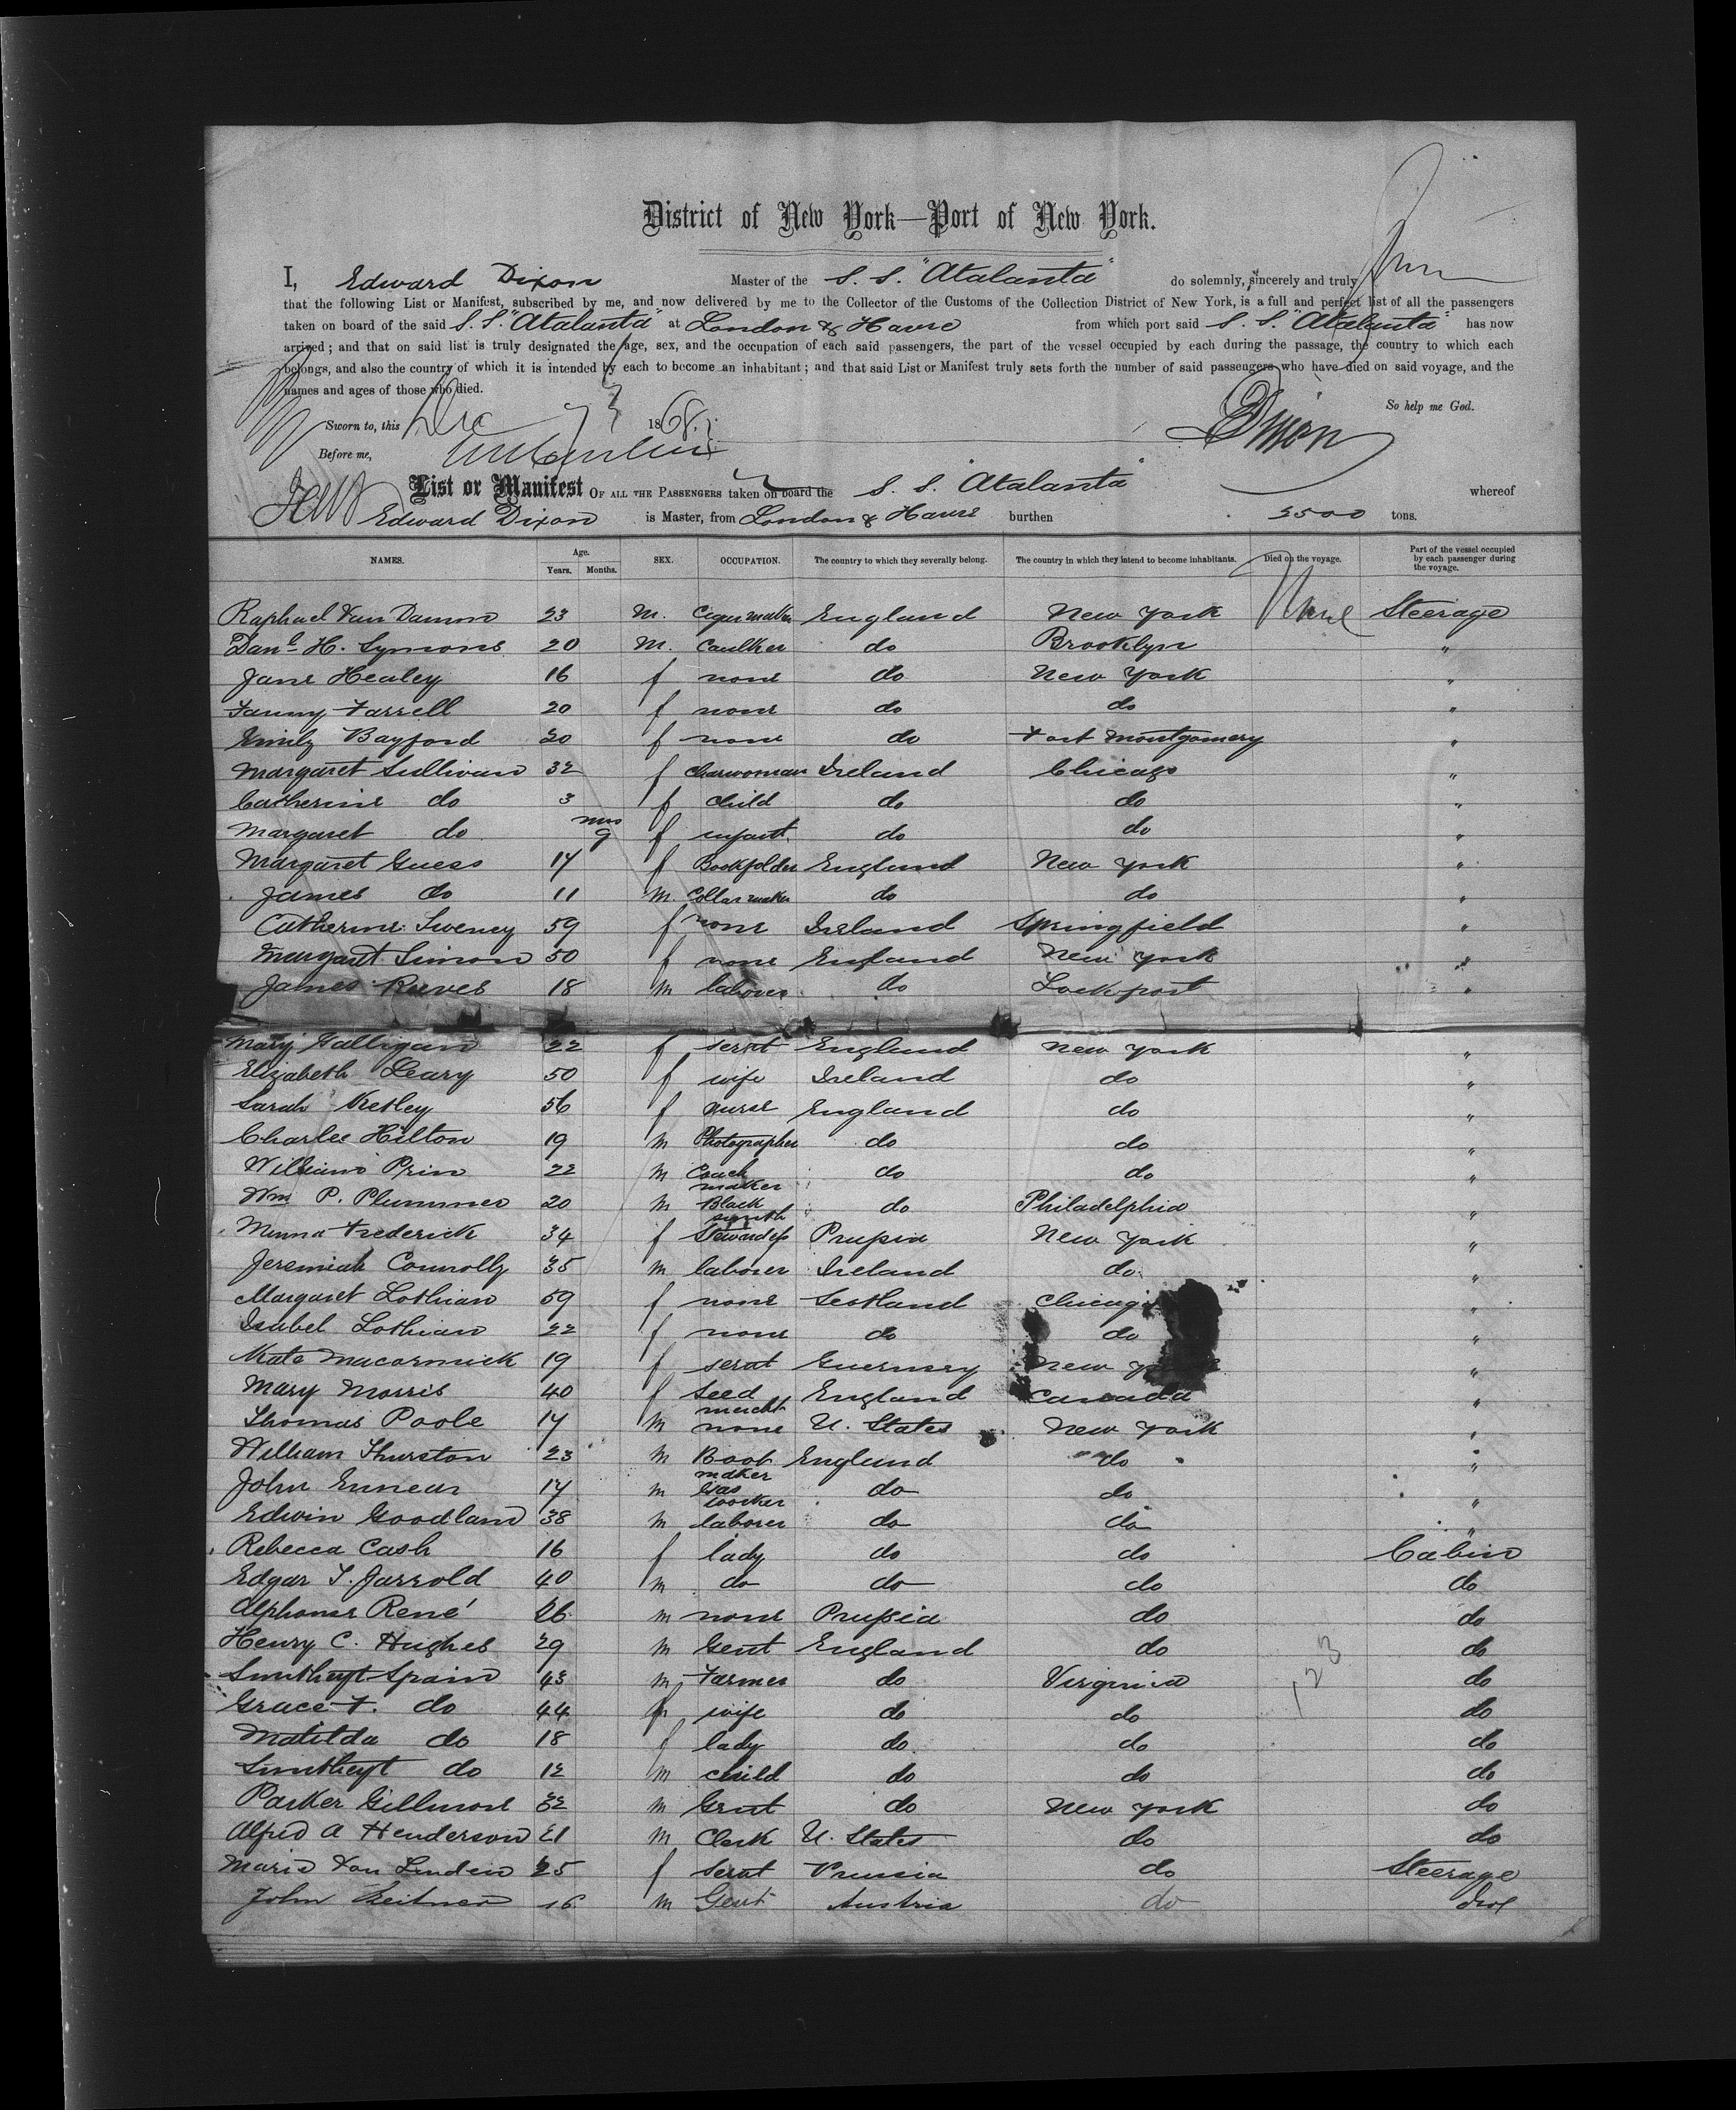 District of New York—Port of New York.
I, Edward Dixon Master of the S. S. "Atalanta" do solemnly, sincerely and truly
that the following List or Manifest, subscribed by me, and now delivered by me to the Collector of the Customs of the Collection District of New York, is a full and perfect list of all the passengers
taken on board of the said S. S. "Atalanta" at London & Havre from which port said S. S. "Atalanta" has now
arrived; and that on said list is truly designated the age, sex, and the occupation of each said passengers, the part of the vessel occupied by each during the passage, the country to which each
belongs, and also the country of which it is intended by each to become an inhabitant; and that said List or Manifest truly sets forth the number of said passengers who have died on said voyage, and the
names and ages of those who died.
So help me God.
Sworn to, this Dec 1868
Before me,
EDixon
List or Manifest OF ALL THE PASSENGERS taken on board the S. S. "Atalanta" whereof
Edward Dixon is Master, from London & Havre burthen tons.
NAMES. Age. Years. Months. SEX. OCCUPATION. The country to which they severally belong. The country in which they intend to become inhabitants. Died on the voyage. Part of the vessel occupied by each passenger during the voyage.
Raphael Van Damm 23 M. Cigar maker England New York None Steerage
Danl H. Symons 20 M. Caulker do Brooklyn "
Jane Healey 16 f none do New York "
Fanny Farrell 20 f none do do "
Emily Bayford 20 f none do Fort Montgomery "
Margaret Sullivan 32 f Charwoman Ireland Chicago "
Catherine do 3 f child do do "
Margaret do mos 9 f infant do do "
Margaret Guess 17 f Bookfolder England New York "
James do 11 M. Collar maker do do "
Catherine Sweney 59 f none Ireland Springfield "
Margaret Simon 50 f none England New York "
James Reeves 18 M laborer do Lockport "
Mary Galligan 22 f servt England New York "
Elizabeth Leary 50 f wife Ireland do "
Sarah Ketley 56 f nurse England do "
Charles Hilton 19 M Photographer do do "
William Prin 22 M Coach maker do do "
Wm P. Plummer 20 M Black smith do Philadelphia "
Minna Frederick 34 f Stewardess Prussia New York "
Jeremiah Connolly 35 M laborer Ireland do "
Margaret Lothian 59 f none Scotland Chicago "
Isabel Lothian 22 f none do do "
Kate Macormick 19 f servt Guernsey New York "
Mary Morris 40 f Seed mercht England Canada "
Thomas Poole 17 M none U. States New York "
William Thurston 23 M Boot maker England do "
John Ennear 17 M Gas worker do do "
Edwin Goodland 38 M laborer do do "
Rebecca Cash 16 f lady do do Cabin
Edgar T. Jarrold 40 M do do do do
Alphonse René 26 M none Prussia do do
Henry C. Hughes 29 M Gent England do do
Spain 43 M Farmer do Virginia do
Grace F. do 44 f wife do do do
Matilda do 18 f lady do do do
do 12 M child do do do
Parker Gillmore 32 M Gent do New York do
Alfred A Henderson 21 M Clerk U. States do do
Marie Van Linden 25 f servt Prussia do Steerage
John 16 M Gent Austria do
123